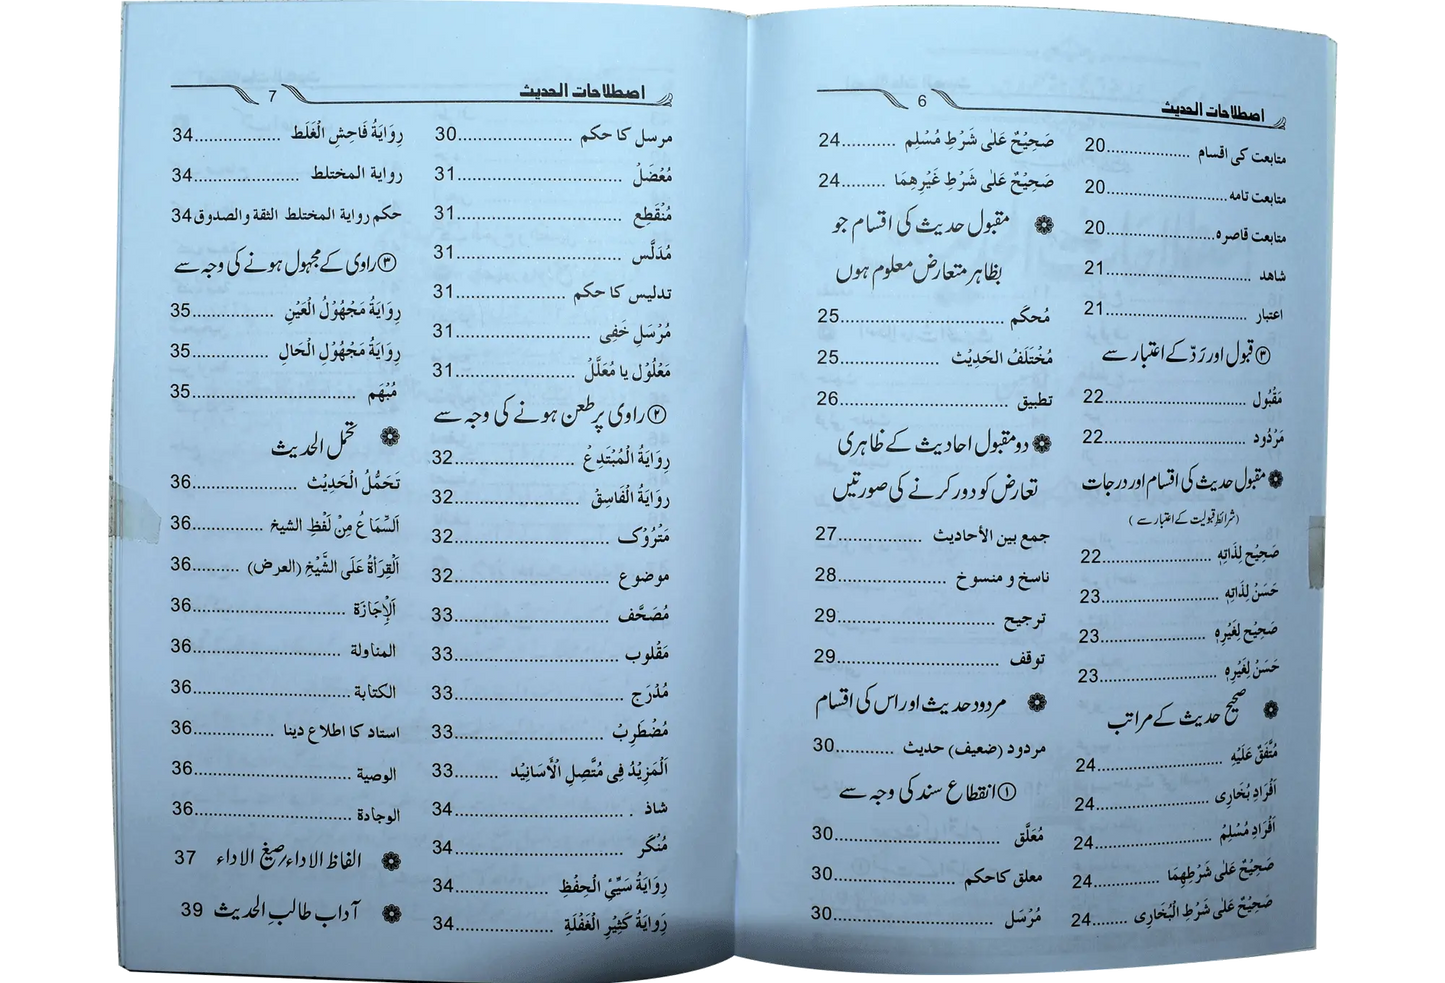 اصطلاحات الحدیث
6
متابعت کی اقسام ................ 20
متابعت تامہ ................ 20
متابعت قاصرہ ................ 20
شاهد ................ 21
اعتبار ................ 21
③ قبول اور رَدّ کے اعتبار سے
مَقْبُول ................ 22
مَرْدُود ................ 22
مقبول حدیث کی اقسام اور درجات
(شرائط قبولیت کے اعتبار سے)
صَحِیْح لِذَاتِہٖ ................ 22
حَسَنْ لِذَاتِہٖ ................ 23
صَحِیْح لِغَیْرِہٖ ................ 23
حَسَنْ لِغَیْرِہٖ ................ 23
صحیح حدیث کے مراتب
مُتَّفَقْ عَلَیْہِ ................ 24
اَفْرَادِ بُخَارِی ................ 24
اَفْرَادِ مُسْلِمْ ................ 24
صَحِیْحٌ عَلٰی شَرْطِهِمَا ............ 24
صَحِیْحٌ عَلٰی شَرْطِ الْبُخَارِی ....... 24
صَحِیْحٌ عَلٰی شَرْطِ مُسْلِم .......... 24
صَحِیْحٌ عَلٰی شَرْطِ غَیْرِهِمَا ......... 24
مقبول حدیث کی اقسام جو
بظاہر متعارض معلوم ہوں
مُحکَم ................ 25
مُخْتَلَفُ الحَدِیْث ................ 25
تطبیق ................ 26
دو مقبول احادیث کے ظاہری
تعارض کو دور کرنے کی صورتیں
جمع بین الأحادیث ................ 27
ناسخ و منسوخ ................ 28
ترجیح ................ 29
توقف ................ 29
مردود حدیث اور اس کی اقسام
مردود (ضعیف) حدیث .......... 30
① انقطاع سند کی وجہ سے
مُعَلَّق ................ 30
معلق کاحکم ................ 30
مُرْسَل ................ 30
اصطلاحات الحدیث
7
مرسل کا حکم ................ 30
مُعْضَلْ ................ 31
مُنْقَطِع ................ 31
مُدَلَّس ................ 31
تدلیس کا حکم ................ 31
مُرْسَلِ خَفِی ................ 31
مَعْلُوْل یا مُعَلَّلْ ................ 31
② راوی پر طعن ہونے کی وجہ سے
رِوَایَةُ الْمُبْتَدِعْ ................ 32
رِوَایَةُ الْفَاسِقْ ................ 32
مَتْرُوْک ................ 32
موضوع ................ 32
مُصَحَّف ................ 33
مَقْلوب ................ 33
مُدْرَج ................ 33
مُضْطَرِبْ ................ 33
اَلْمَزِیْدُ فِی مُتَّصِلِ الْأَسَانِیْد ........ 33
شاذ ................ 34
مُنْکَر ................ 34
رِوَایَةُ سَیِّیِٔ الْحِفْظِ ................ 34
رِوَایَةُ کَثِیْرِ الْغَفْلَةِ ................ 34
رِوَایَةُ فَاحِشِ الْغَلَط ................ 34
روایة المختلط ................ 34
حکم روایة المختلط الثقة والصدوق 34
③ راوی کے مجہول ہونے کی وجہ سے
رِوَایَةُ مَجْهُوْلُ الْعَیْنِ ................ 35
رِوَایَةُ مَجْهُوْلِ الْحَالِ ................ 35
مُبْهَم ................ 35
تحمل الحدیث
تَحَمُّلُ الْحَدِیْث ................ 36
اَلسِّمَاعُ مِنْ لَفْظِ الشیخ ............ 36
اَلْقِرَأةُ عَلَی الشَّیْخِ (العرض) ......... 36
اَلْإِجَازَة ................ 36
المناولة ................ 36
الکتابة ................ 36
استاد کا اطلاع دینا ............. 36
الوصیة ................ 36
الوجادة ................ 36
الفاظ الاداء/صیغ الاداء 37
آداب طالبِ الحدیث 39